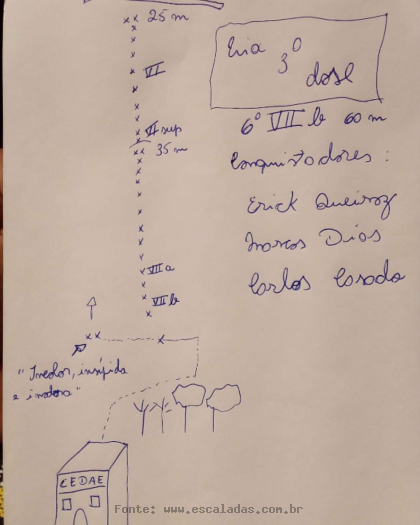 25 m
VI
VI sup
35 m
VII a
VII b
Via
3º
dose
6º VII b 60 m
Conquistadores:
Erick Queiroz
Marcos Dias
Carlos Casado
"Incolor, insípida
e inodora"
CEDAE
Fonte: www.escaladas.com.br